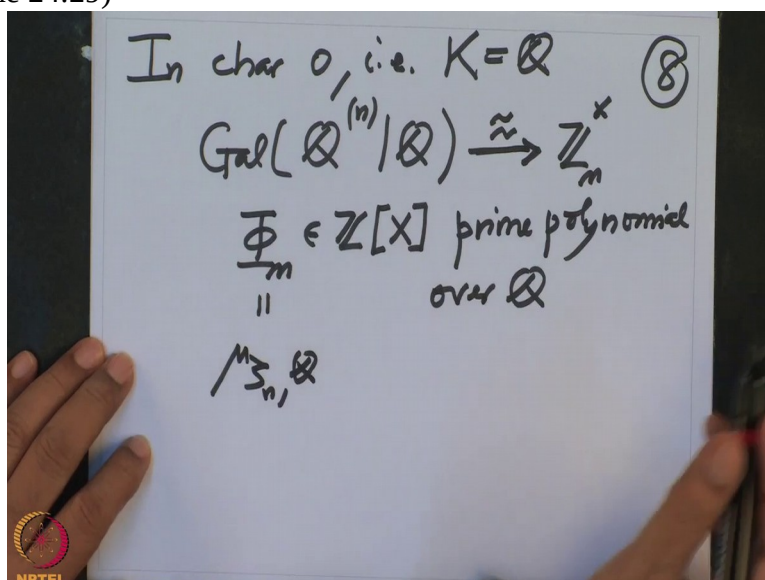 In char 0, i.e. K = ℚ ⑧
Gal(ℚ⁽ⁿ⁾|ℚ) ⥲ ℤₙˣ
Φₙ ∈ ℤ[X] prime polynomial
|| over ℚ
μ_{ζₙ, ℚ}
NPTEL